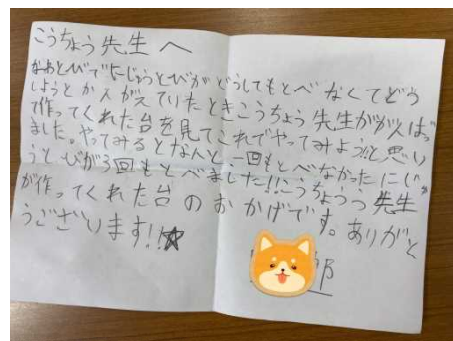 こうちょう先生へ
なわとびでにじゅうとびがどうしてもとべなくてどう
しようとかんがえていたときこうちょう先生ががんばっ
て作ってくれた台を見てこれでやってみよう!!と思い
ました。やってみるとなんと、一回もとべなかったにじゅ
うとびが3回もとべました!!こうちょうっ先生
が作ってくれた台のおかげです。ありがと
うございます!!☆
郎